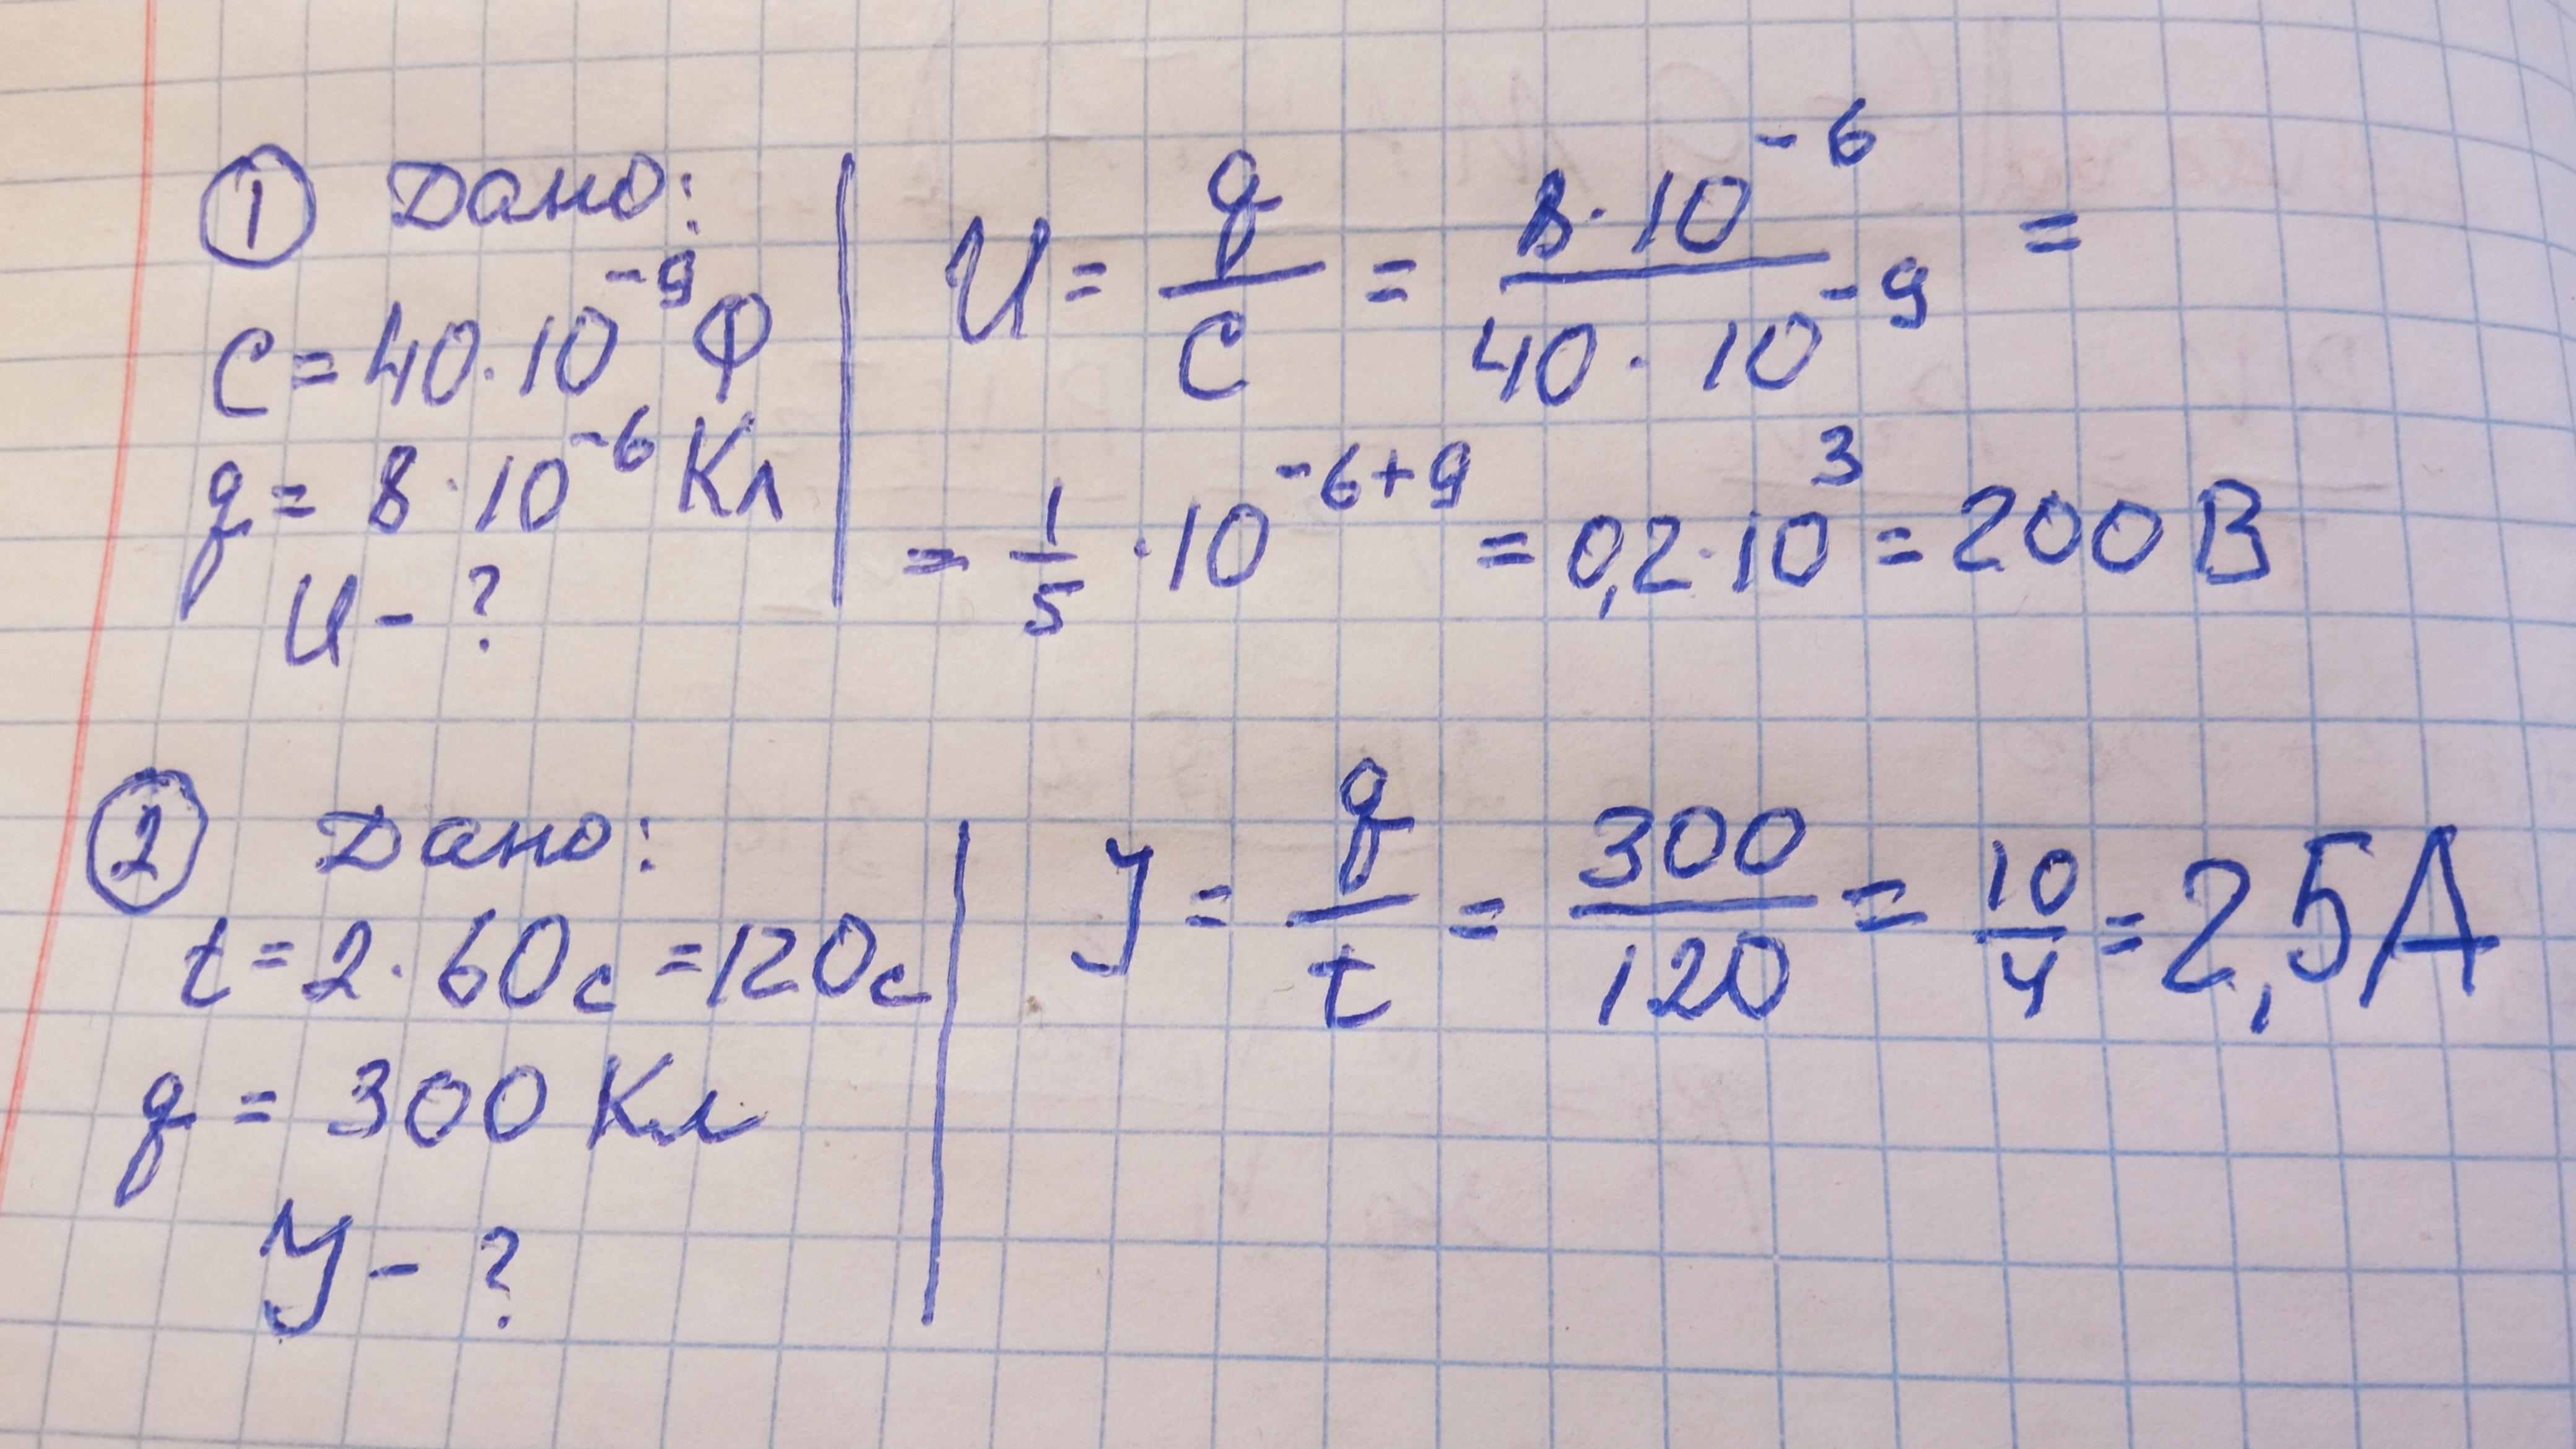 ① Дано:
C = 40·10⁻⁹ Ф
q = 8·10⁻⁶ Кл
U - ?
U = q/C = 8·10⁻⁶/40·10⁻⁹ =
= 1/5 · 10⁻⁶⁺⁹ = 0,2·10³ = 200 В
② Дано:
t = 2·60с = 120с
q = 300 Кл
J - ?
J = q/t = 300/120 = 10/4 = 2,5А